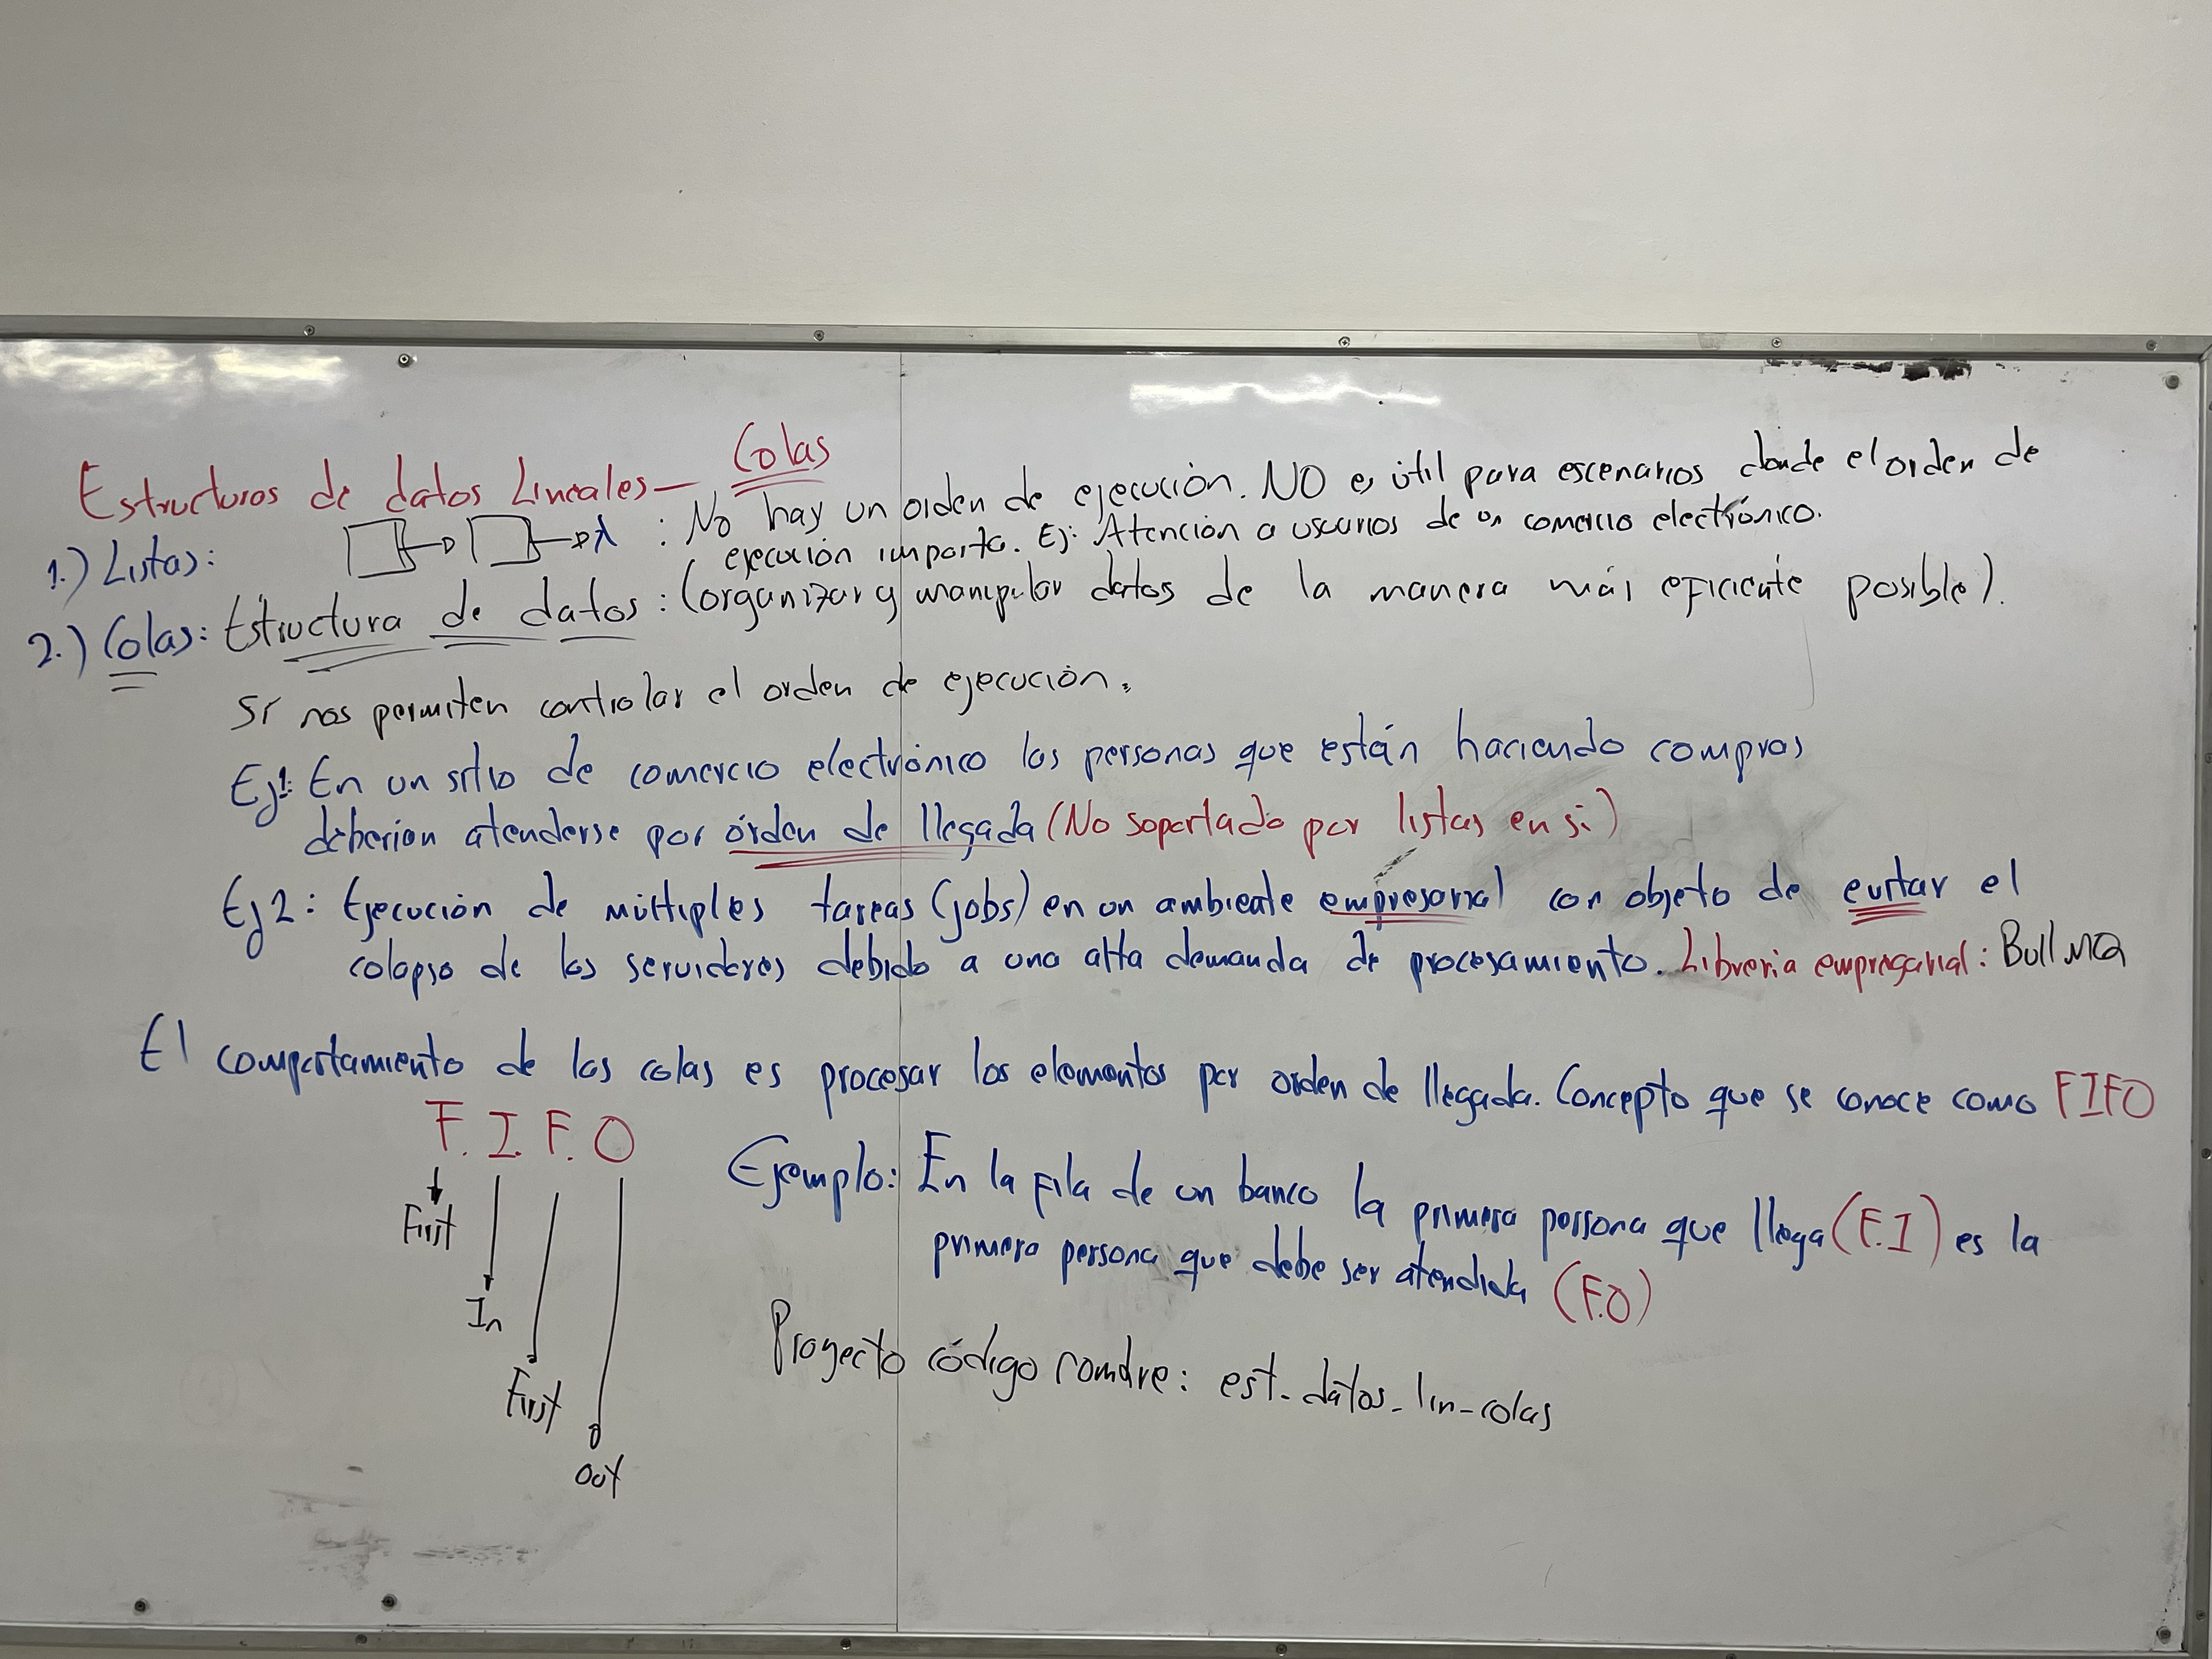 Estructuras de datos Lineales - Colas
1.) Listas: λ : No hay un orden de ejecución. NO es útil para escenarios donde el orden de
ejecución importa. Ej: Atención a usuarios de un comercio electrónico.
2.) Colas: Estructura de datos: (organizar y manipular datos de la manera más eficiente posible).
Sí nos permiten controlar el orden de ejecución.
Ej1: En un sitio de comercio electrónico las personas que están haciendo compras
deberían atenderse por órden de llegada (No soportado por listas en si)
Ej2: Ejecución de múltiples tareas (jobs) en un ambiente empresarial con objeto de evitar el
colapso de los servidores debido a una alta demanda de procesamiento. Libreria empresarial: BullMQ
El comportamiento de las colas es procesar los elementos por orden de llegada. Concepto que se conoce como FIFO
F. I. F. O
First
In
First
Out
Ejemplo: En la fila de un banco la primera persona que llega (F.I) es la
primera persona que debe ser atendida (F.O)
Proyecto código nombre: est_datos_lin_colas